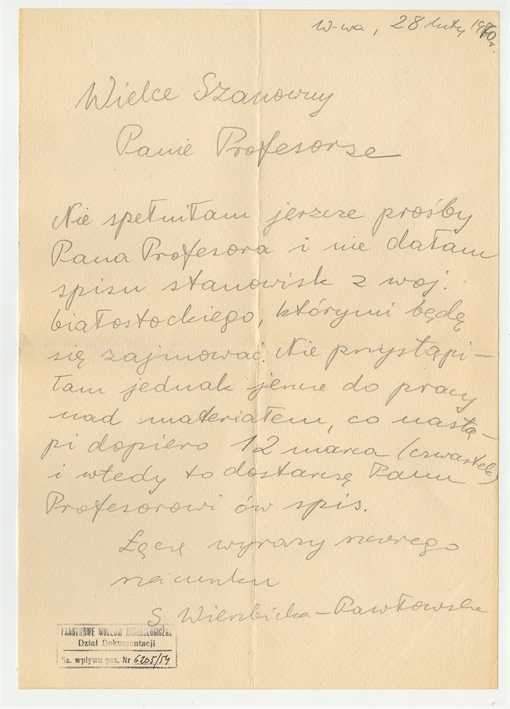 W-wa, 28 luty 1970r.
Wielce Szanowny
Panie Profesorze
Nie spełniłam jeszcze prośby
Pana Profesora i nie dałam
spisu stanowisk z woj.
białostockiego, którymi będę
się zajmować. Nie przystąpi-
łam jednak jeszcze do pracy
nad materiałem, co nastą-
pi dopiero 12 marca (czwartek)
i wtedy to dostarczę Panu
Profesorowi ów spis.
Łączę wyrazy
szacunku
S. Wierzbicka-Pawłowska
PAŃSTWOWE MUZEUM ARCHEOLOGICZNE
Dział Dokumentacji
Ks. wpływu poz. Nr 6205/59